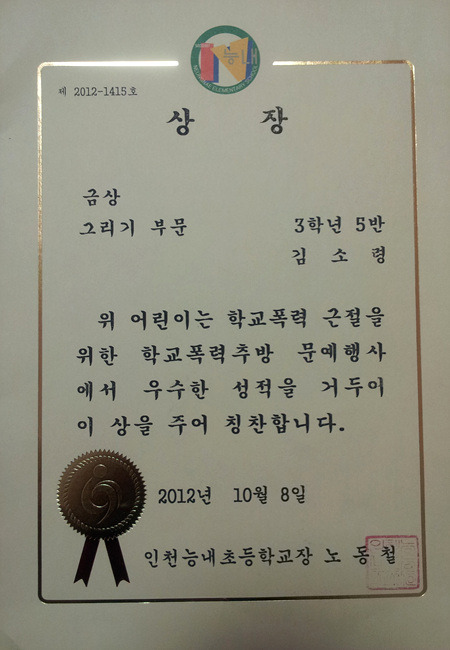 능내
제 2012-1415호
상 장
금상
그리기 부문
3학년 5반
김 소 령
위 어린이는 학교폭력 근절을
위한 학교폭력추방 문예행사
에서 우수한 성적을 거두어
이 상을 주어 칭찬합니다.
2012년 10월 8일
인천능내초등학교장 노 동 철